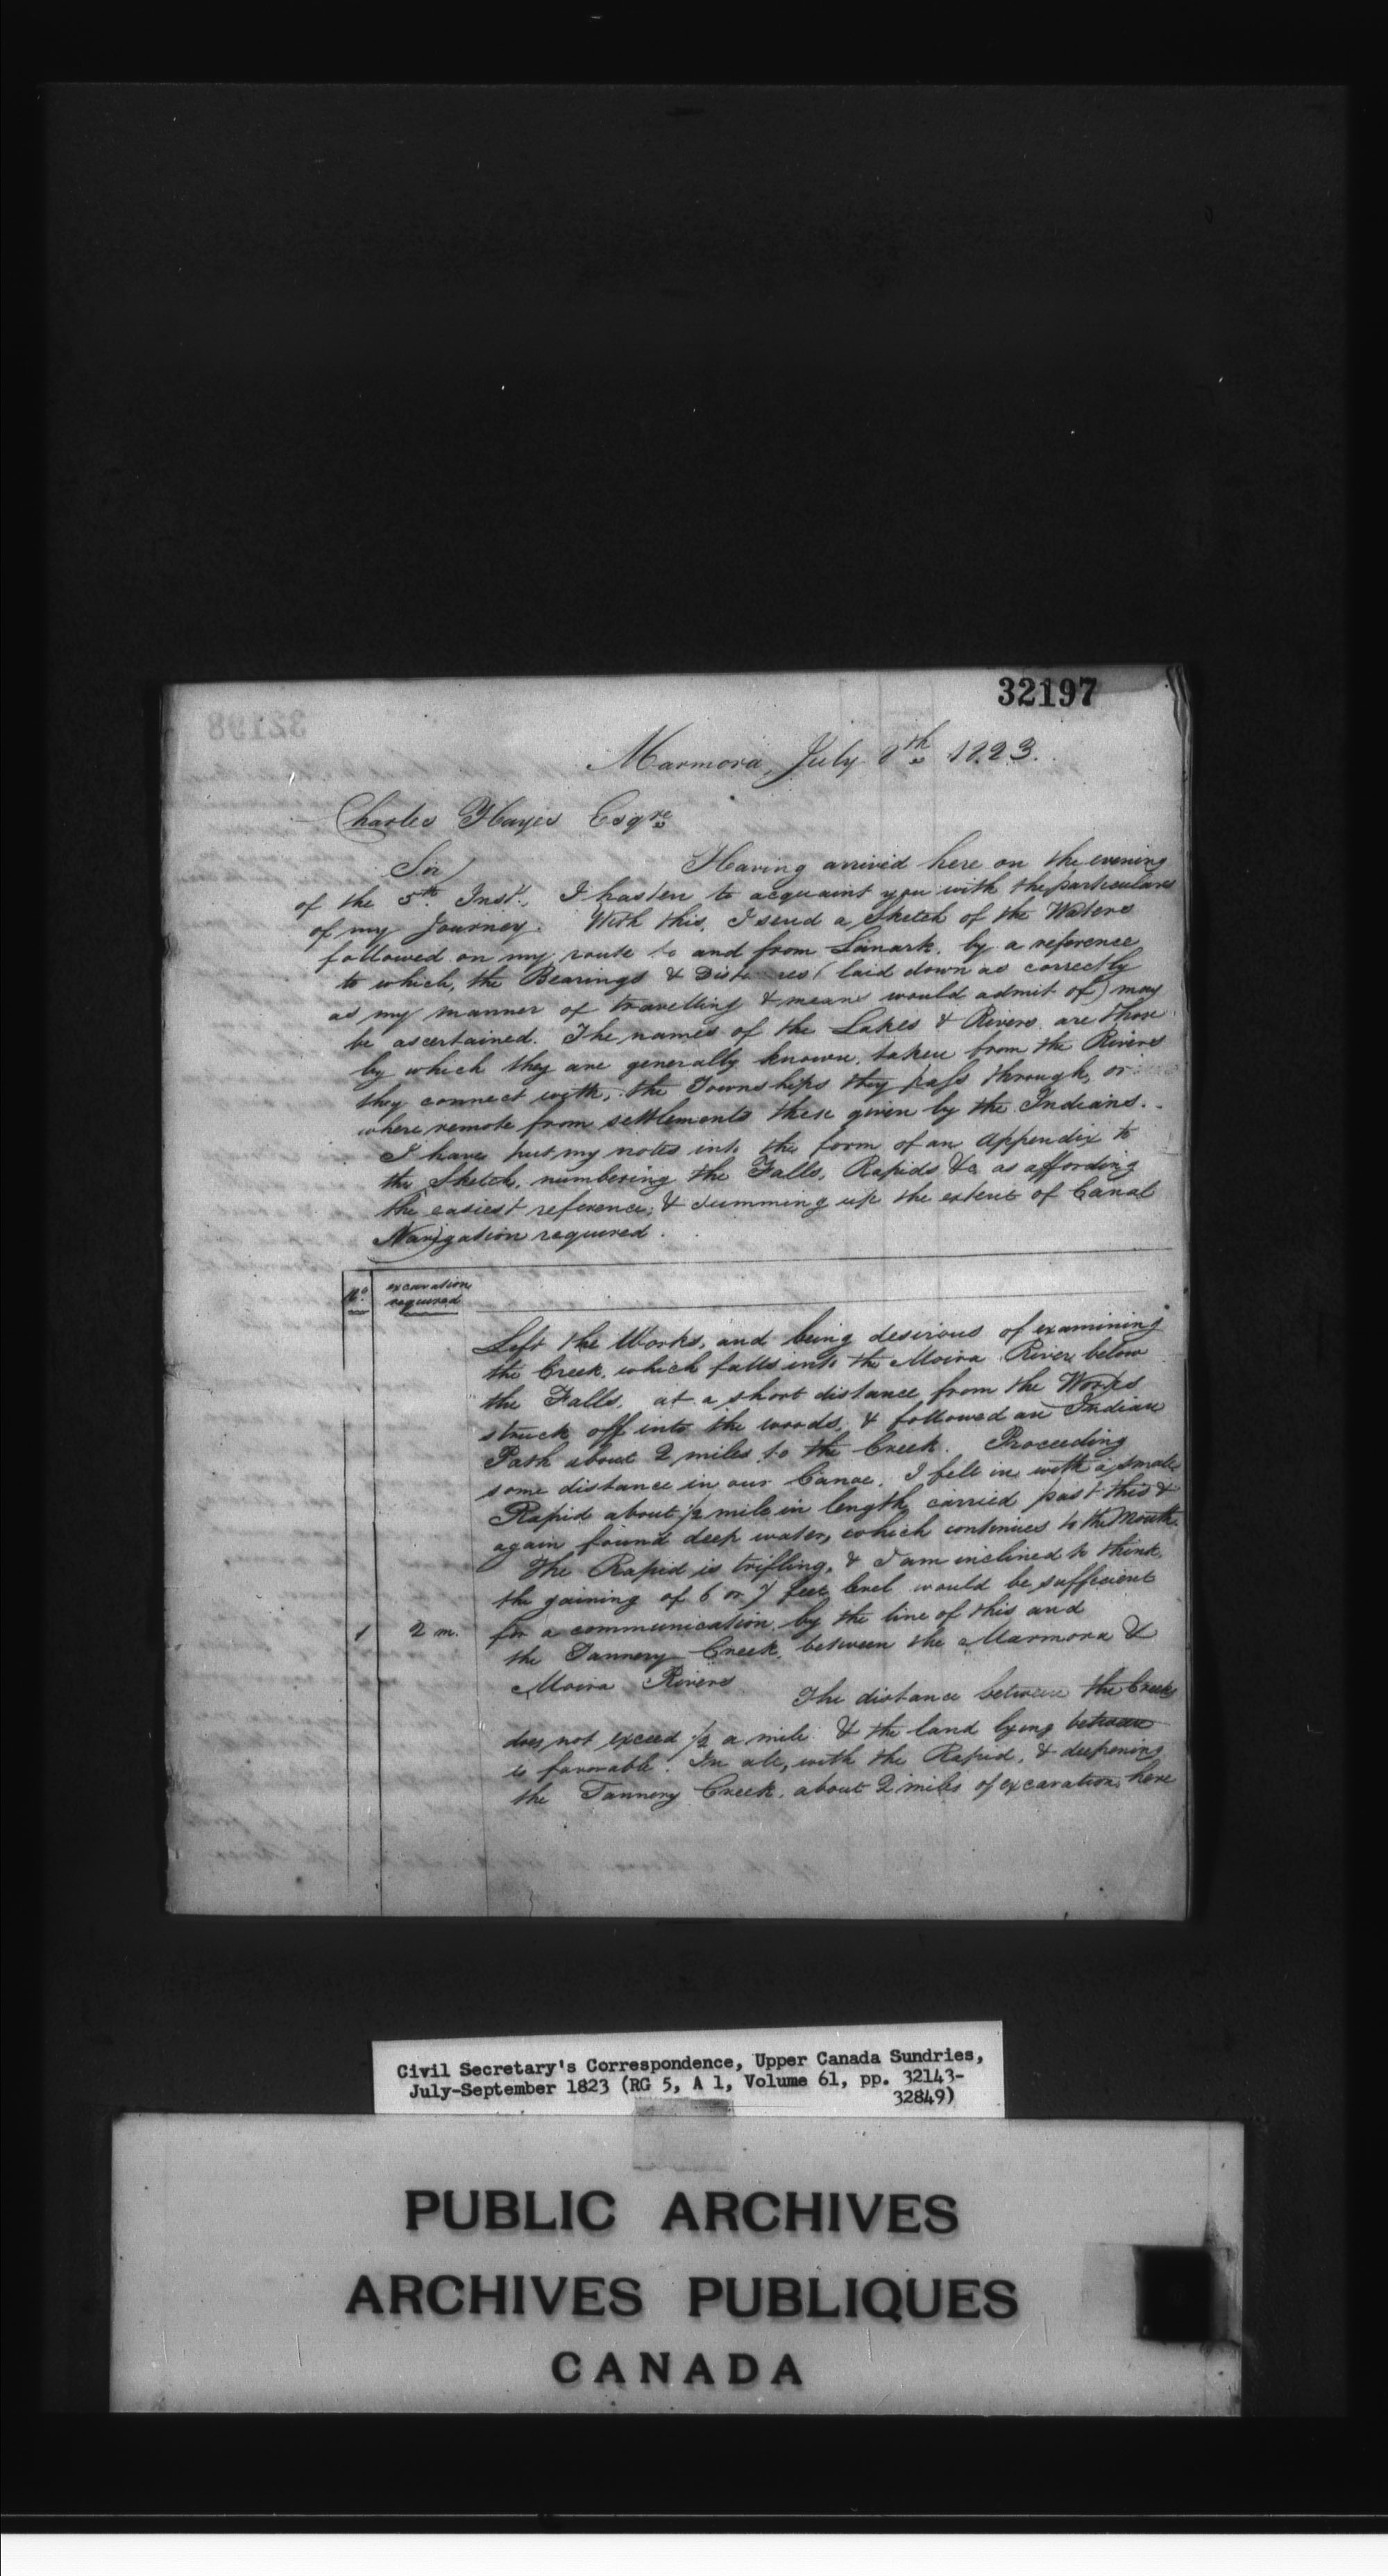 32197
Marmora, July 8th 1823.
Charles Hayes Esqre
Sir/ Having arrived here on the evening
of the 5th Inst., I hasten to acquaint you with the particulars
of my Journey. With this, I send a Sketch of the Waters
followed on my route to and from Lanark, by a reference
to which, the Bearings & Dist    ces (laid down as correctly
as my manner of travelling & means would admit of) may
be ascertained. The names of the Lakes & Rivers are those
by which they are generally known, taken from the Rivers
they connect with, the Townships they pass through, or
where remote from settlements those given by the Indians.
I have put my notes into the form of an Appendix to
the Sketch, numbering the Falls, Rapids &c as affording
the easiest reference; & summing up the extent of Canal
Navigation required.
No. excavation
required
Left the Works, and being desirous of examining
the Creek, which falls into the Moira River below
the Falls, at a short distance from the Works
struck off into the woods, & followed an Indian
Path about 2 miles to the Creek. Proceeding
some distance in our Canoe, I fell in with a small
Rapid about 1/2 mile in length, carried past this &
again found deep water, which continues to the Mouth.
The Rapid is trifling, & I am inclined to think
the gaining of 6 or 7 feet level would be sufficient
1 2 m. for a communication by the line of this and
the Tannery Creek, between the Marmora &
Moira Rivers The distance between the Creeks
does not exceed 1/2 a mile & the land lying between
is favorable. In all, with the Rapid, & deepening
the Tannery Creek, about 2 miles of excavation here
Civil Secretary's Correspondence, Upper Canada Sundries,
July-September 1823 (RG 5, A 1, Volume 61, pp. 32143-
32849)
PUBLIC ARCHIVES
ARCHIVES PUBLIQUES
CANADA